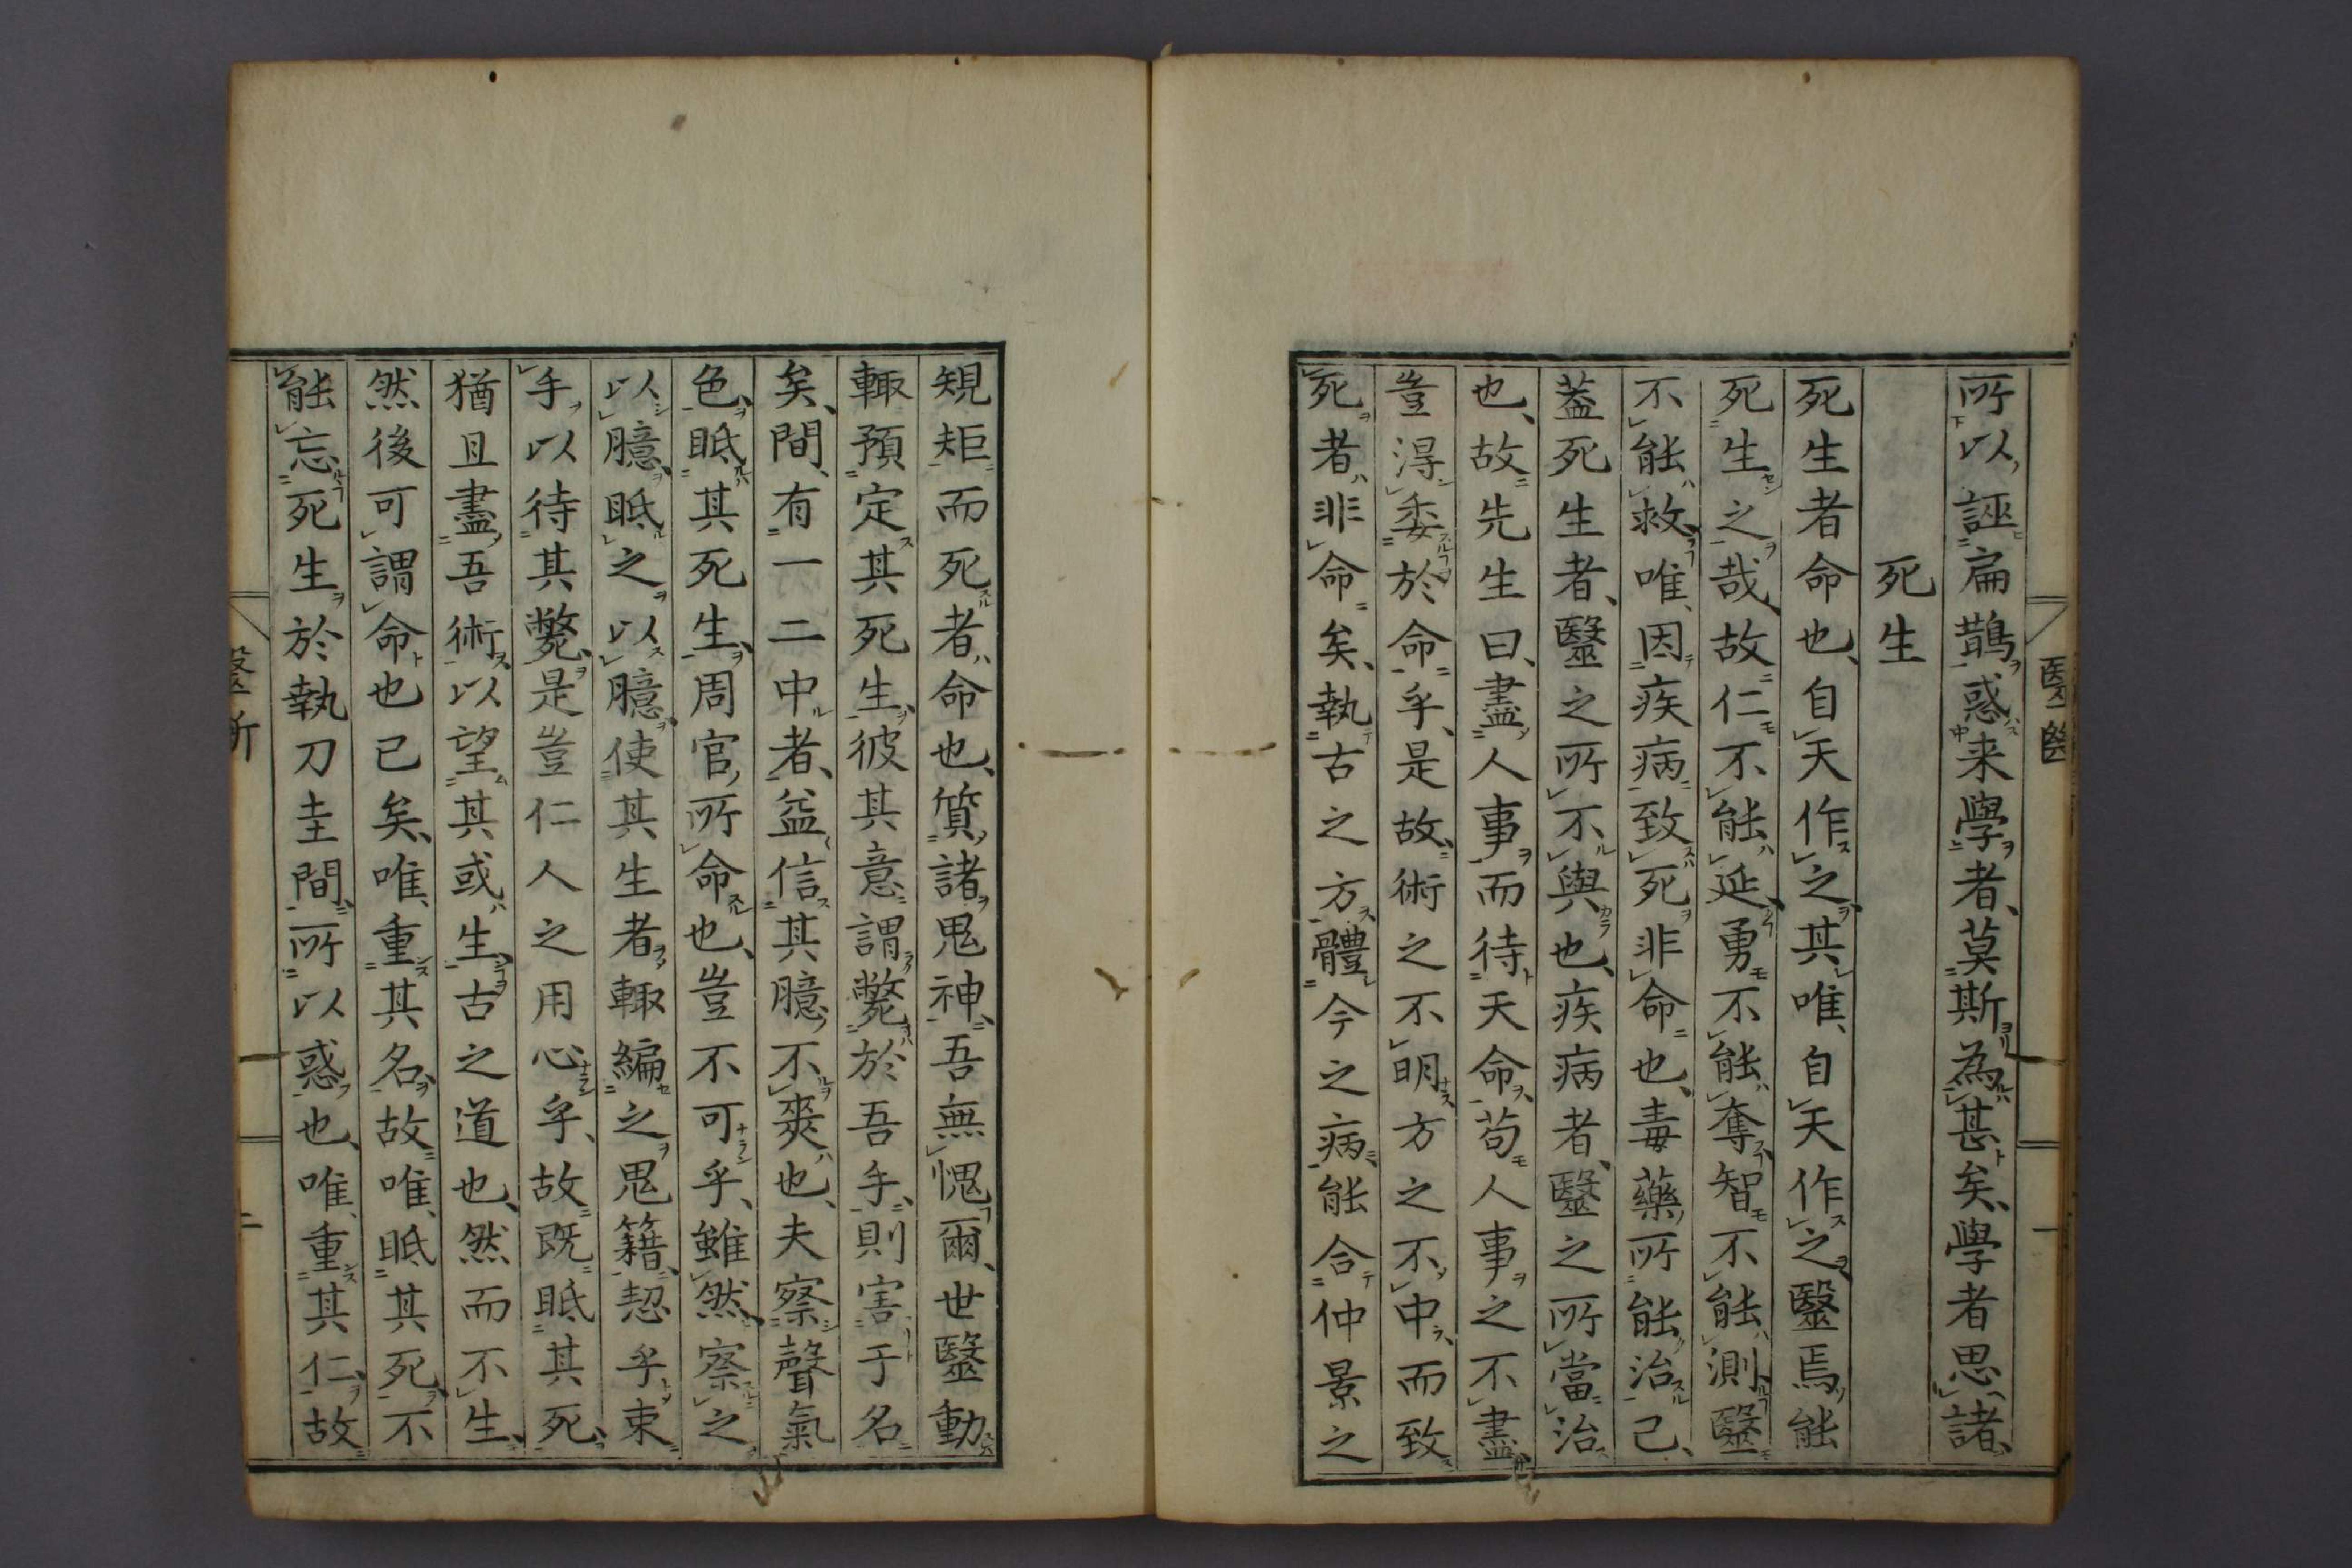 所以誣扁鵲惑来學者莫斯為甚矣學者思諸
死生
死生者命也自天作之其唯自天作之毉焉能
死生之哉故仁不能延勇不能奪智不能測毉
不能救唯因疾病致死非命也毒藥所能治已
蓋死生者毉之所不與也疾病者毉之所當治
也故先生曰盡人事而待天命苟人事之不盡
豈得委於命乎是故術之不明方之不中而致
死者非命矣執古之方體今之病能合仲景之
規矩而死者命也質諸鬼神吾無愧爾世毉動
輙預定其死生彼其意謂斃於吾手則害于名
矣間有一二中者益信其臆不爽也夫察聲氣
色眡其死生周官所命也豈不可乎雖然察之
以臆眡之以臆使其生者輙編之鬼籍恝乎束
手以待其斃是豈仁人之用心乎故既眡其死
猶且盡吾術以望其或生古之道也然而不生
然後可謂命也已矣唯重其名故唯眡其死不
能忘死生於執刀圭間所以惑也唯重其仁故